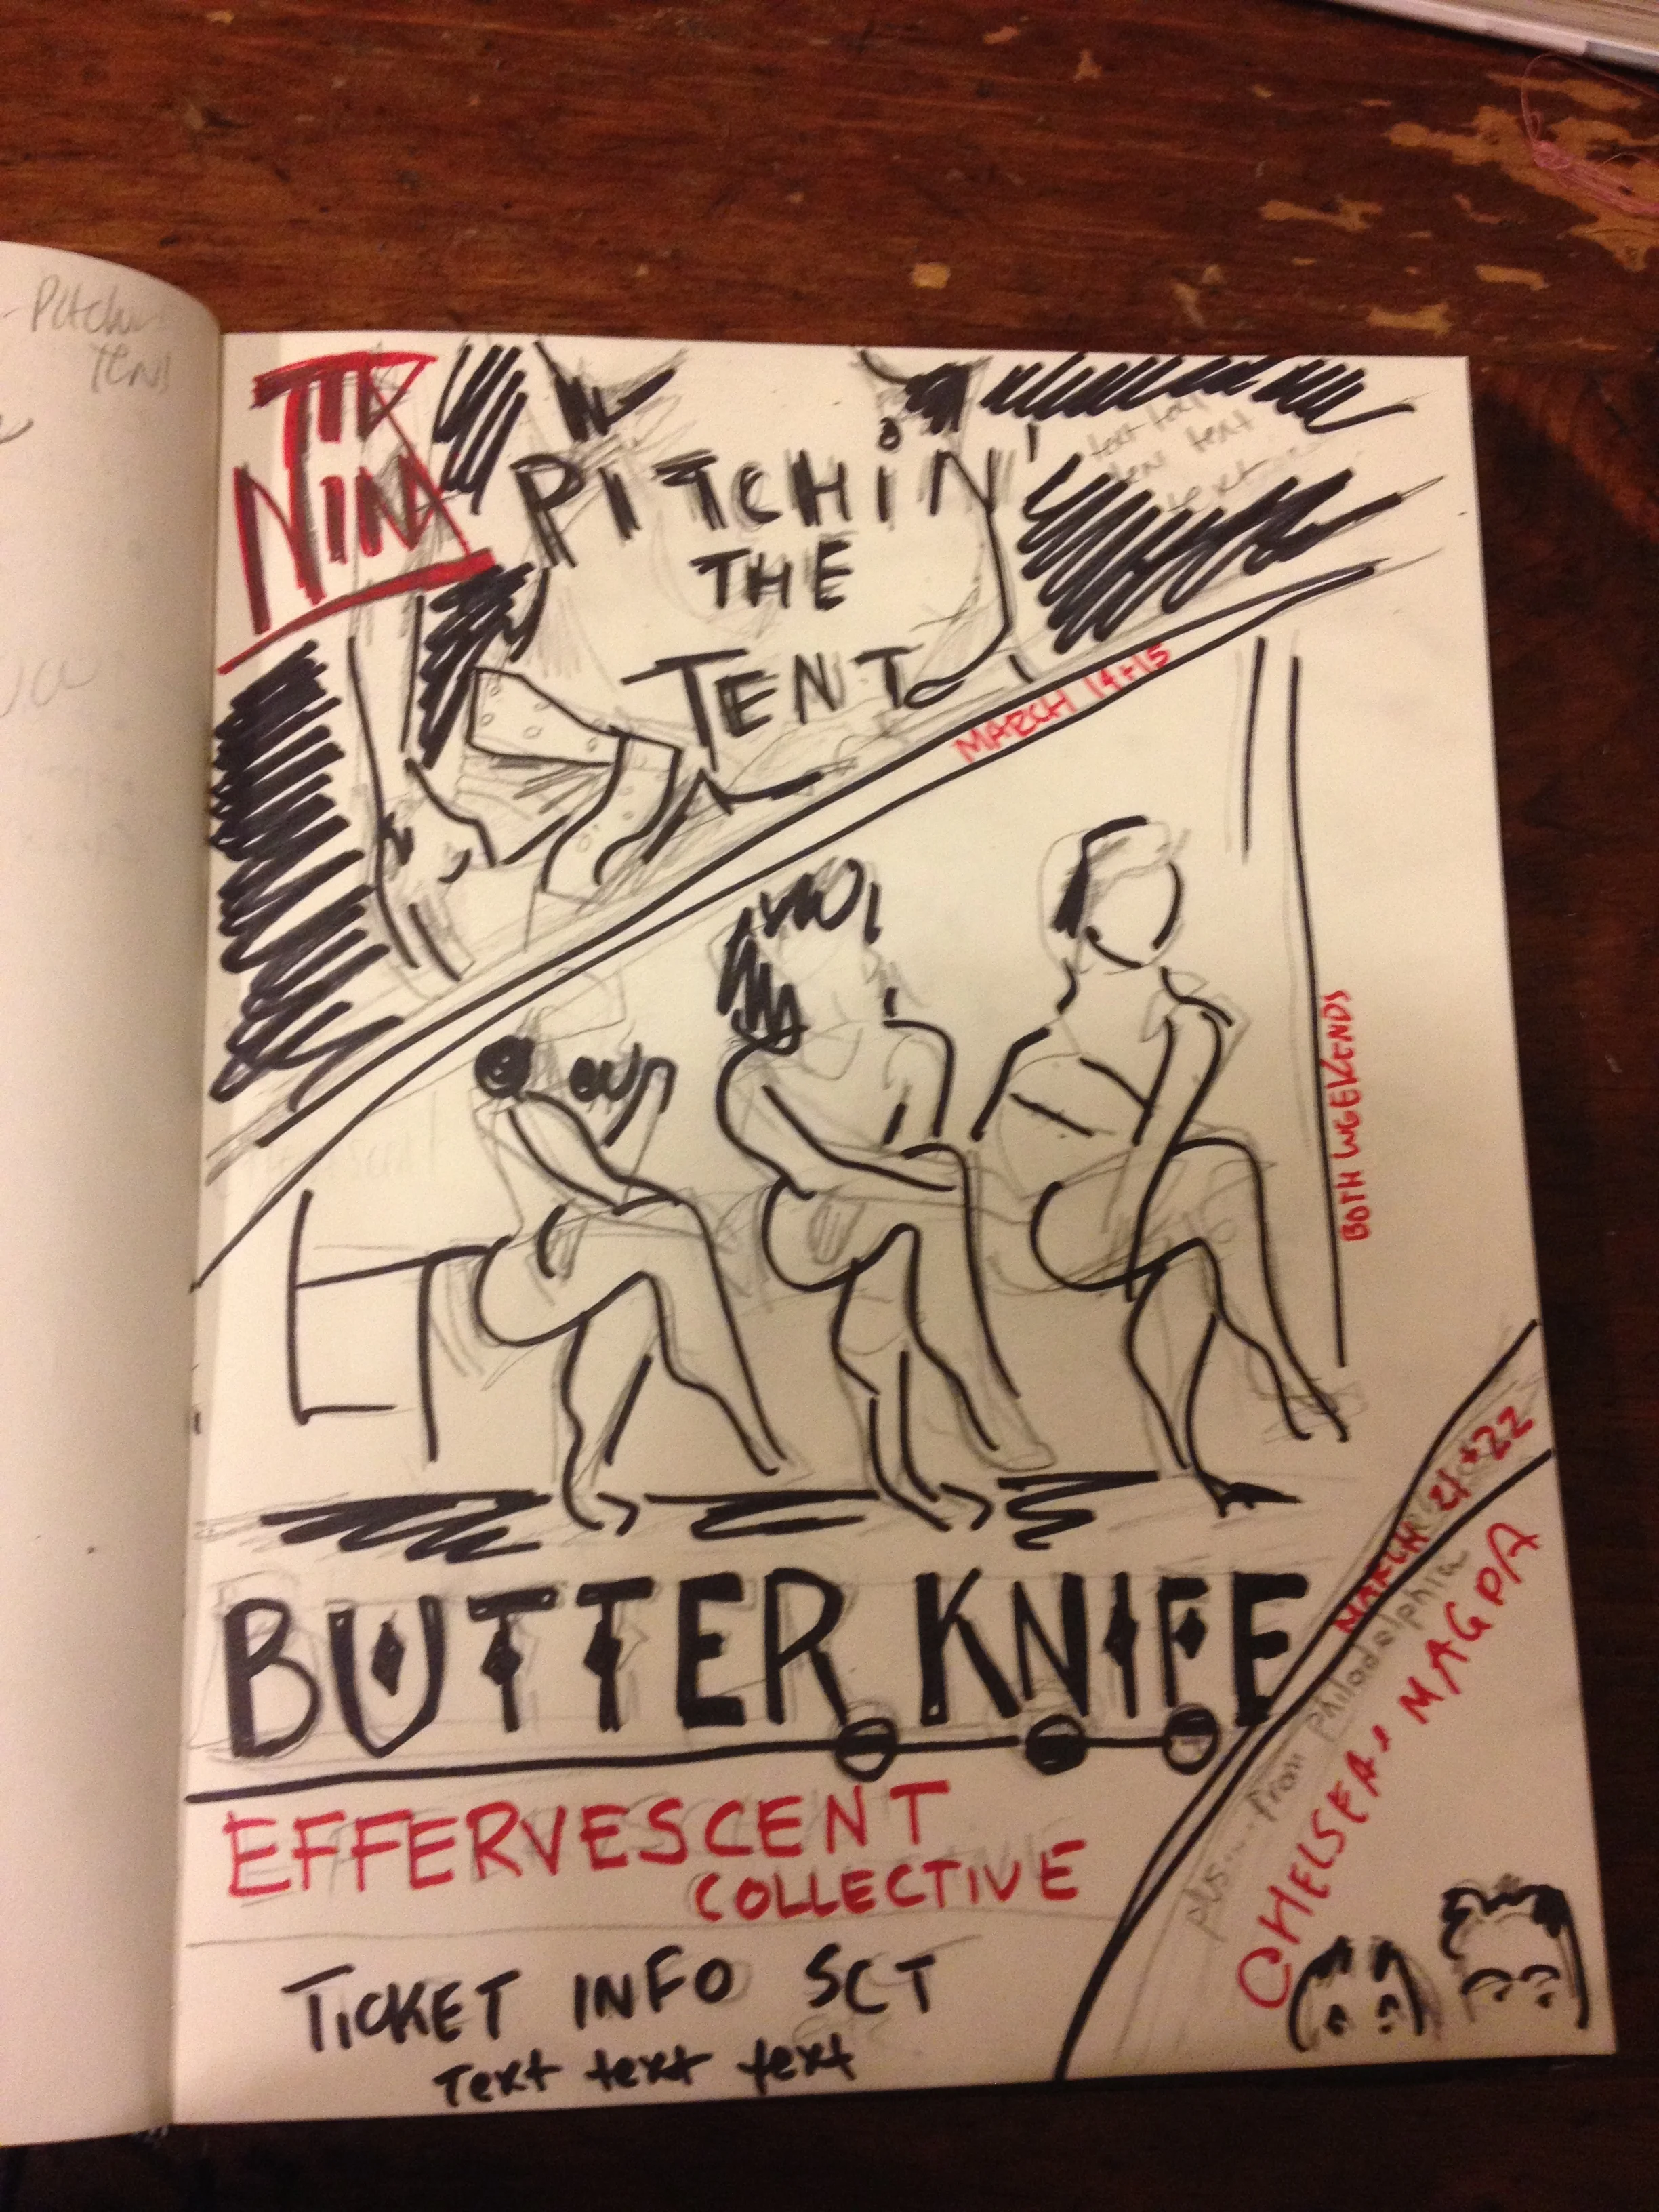 Pitchin
Tent
TTD
NIM
PITCHIN'
THE
TENT
text text
text
text
MARCH 14+15
BOTH WEEKENDS
MARCH 21+22
BUTTER KNIFE
plus... from philadelphia
CHELSEA + MAGDA
EFFERVESCENT
COLLECTIVE
TICKET INFO
Text text text